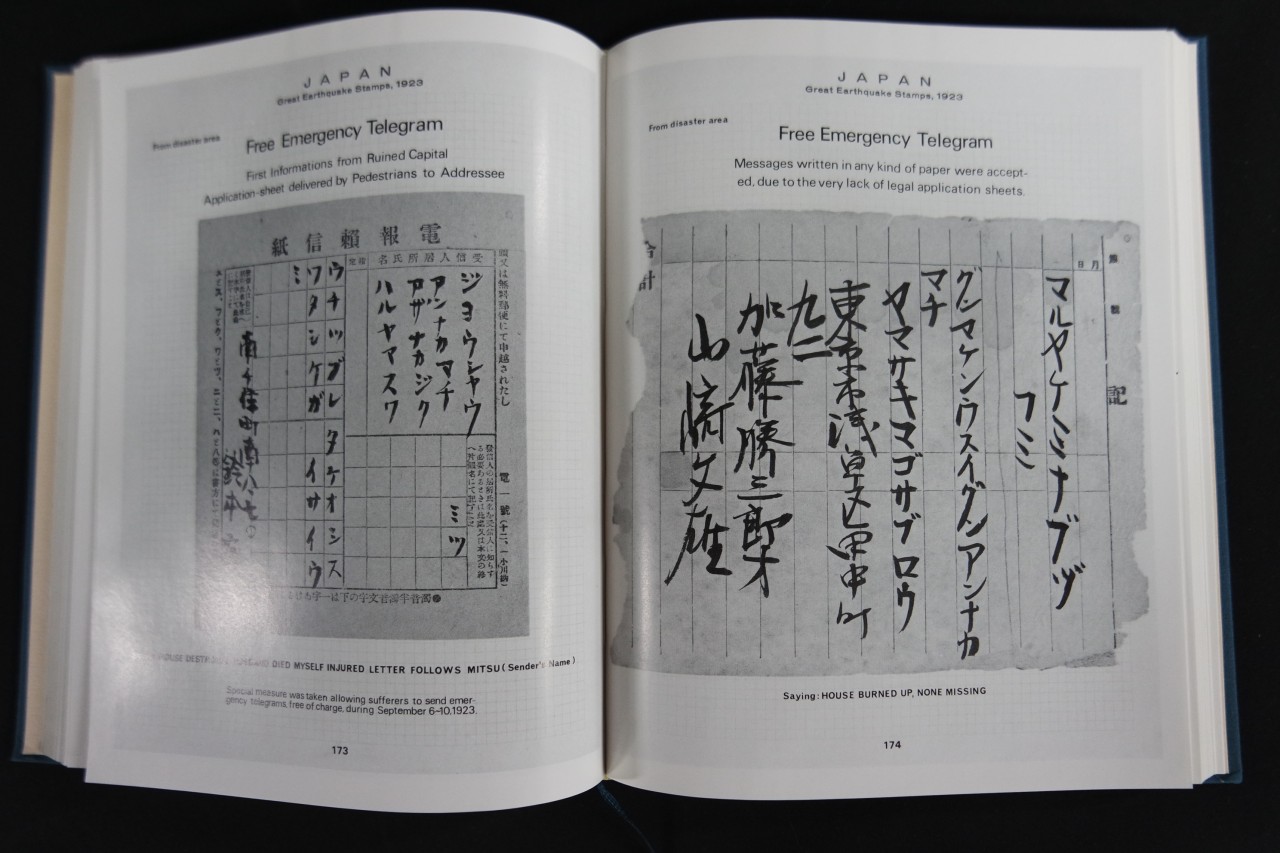 JAPAN
Great Earthquake Stamps, 1923
From disaster area
Free Emergency Telegram
First Informations from Ruined Capital
Application-sheet delivered by Pedestrians to Addressee
電報頼信紙
受信人居所氏名
指定
ジヨウシヤウ
アンナカマチ
アザナカジク
ハルヤマスワ
ミツ
ウチツブレタケオシス
ワタシケガイサイウ
ミ
南千住町南
鈴木
電一號
HOUSE DESTROY
DIED MYSELF INJURED LETTER FOLLOWS MITSU (Sender's Name)
Special measure was taken allowing sufferers to send emer-
gency telegrams, free of charge, during September 6-10, 1923.
173
JAPAN
Great Earthquake Stamps, 1923
From disaster area
Free Emergency Telegram
Messages written in any kind of paper were accept-
ed, due to the very lack of legal application sheets.
記
月日
マルヤケミナブヅ
フミ
グンマケンウスイグンアンナカ
マチ
ヤマサキマゴサブロウ
東京市浅草区田中町
九二
加藤勝三郎方
山崎文雄
合計
Saying: HOUSE BURNED UP, NONE MISSING
174